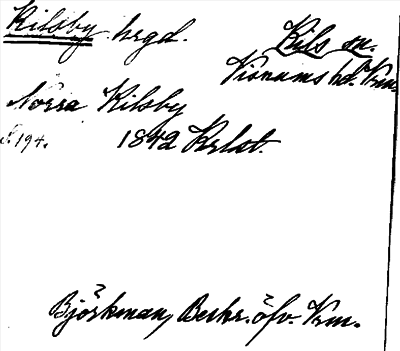 Kilsby hrgd. Kils sn.
Visnums hd. Vrm.
Norra Kilsby
S. 194. 1842 Krlst.
Björkman, Beskr. öfv. Vrm.